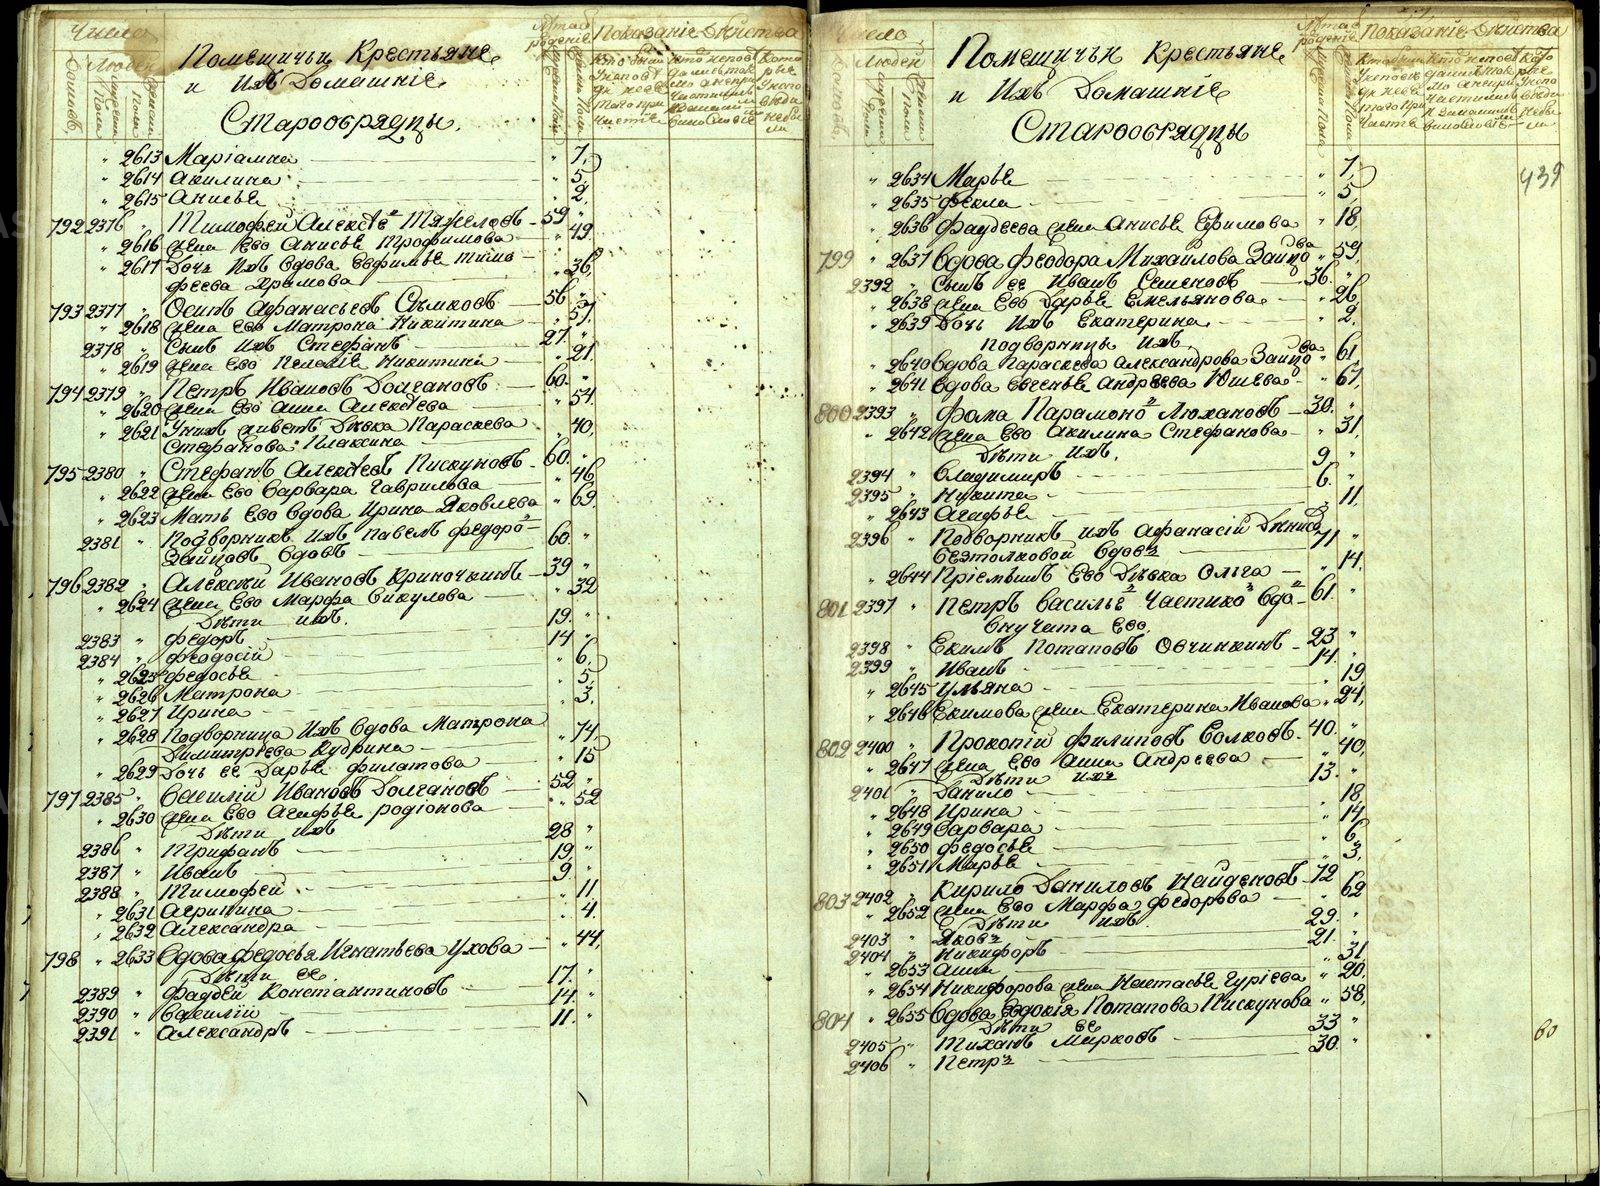 Число
Людей
Помещичьи Крестьяне
и Ихъ Домашніе
Старообрядцы.
Лѣта от рожденія
Показаніе Дѣйства
" 2613 Маріамна " 7,
" 2614 Акилина " 5,
" 2615 Анисья " 2,
792 2376 " Тимофей Алексѣе 59 "
" 2616 жена Его Анисья Трофимова " 49,
" 2617 Дочь Ихъ вдова Евфимья Тимо-
феева Храмова " 36,
793 2377 " Осипъ Афанасьевъ Сѣмковъ 56 "
" 2618 жена Его Матрона Никитина " 57,
2378 " Сынъ Ихъ Стефанъ 27. "
" 2619 жена Его Пелагія Никитина " 21.
794 2379 " Петръ Ивановъ Долгановъ 60. "
" 2620 жена Его Анна Алексѣева " 54.
" 2621 У нихъ живетъ Дѣвка Параскева
Стефанова Плаксина " 40,
795 2380 " Стефанъ Алексѣевъ Пискуновъ 60. "
" 2622 жена Его Варвара Гаврилова " 46,
" 2623 Мать Его вдова Ирина Яковлева " 69.
2381 " Подворникъ Ихъ Павелъ Федоро-
Зайцовъ вдовъ 60. "
796 2382 " Алексѣй Ивановъ Криночкинъ 39 "
" 2624 жена Его Марфа Викулова " 32
Дѣти ихъ.
2383 " Федоръ 19. "
2384 " Феодосій 14 "
" 2625 Федосья " 6,
" 2626 Матрона " 5,
" 2627 Ирина " 3,
" 2628 Подворница Ихъ вдова Матрона
Димитріева Кудрина " 74,
" 2629 Дочь ее Дарья Филатова " 15
797 2385 " Василій Ивановъ Долгановъ 52 "
" 2630 жена Его Агафья Родіонова " 52
Дѣти ихъ
2386 " Трифанъ 28 "
2387 " Иванъ 19, "
2388 " Тимофей 9 "
" 2631 Агрипина " 11
" 2632 Александра " 4.
798 " 2633 Вдова Федосья Игнатьева Ухова " 44,
Дѣти ее.
2389 " Фаддей Константиновъ 17. "
2390 " Василій 14 "
2391 " Александръ 11. "
Число
Людей
Помещичьи Крестьяне
и Ихъ Домашніе
Старообрядцы
Лѣта от рожденія
Показаніе Дѣйства
439
" 2634 Марья " 7,
" 2635 Фекла " 5,
" 2636 Фаддеева жена Анисья Ефимова " 18,
799 " 2637 Вдова Феодора Михайлова Зайцова " 59,
2392 " Сынъ ее Иванъ Семеновъ 36. "
" 2638 жена Его Дарья Емельянова " 26,
" 2639 Дочь Ихъ Екатерина " 2,
Подворницы Ихъ
" 2640 вдова Параскева Александрова Зайцова " 61,
" 2641 вдова Евгенья Андреева Юшева " 67,
800 2393 " Фома Парамоно Люхановъ 30. "
" 2642 жена Его Акилина Стефанова " 31,
Дѣти ихъ.
2394 " Владимиръ 9, "
2395 " Никита 6. "
" 2643 Агафья " 11,
2396 " Подворникъ ихъ Афанасій Денисо
Безтолковой вдовъ 71 "
" 2644 Пріемышъ Его Дѣвка Ольга " 14.
801 2397 " Петръ Василье Частико вдо- 61. "
Внучата Его.
2398 " Екимъ Потаповъ Овчинкинъ 23 "
2399 " Иванъ 14. "
" 2645 Ульяна " 19
" 2646 Екимова жена Екатерина Иванова " 24,
802 2400 " Прокопій Филиповъ Волковъ 40. "
" 2647 жена Его Анна Андреева " 40,
Дѣти ихъ
2401 " Данило 13. "
" 2648 Ирина " 18,
" 2649 Варвара " 14,
" 2650 Федосья " 6,
" 2651 Марья " 3,
803 2402 " Кирило Даниловъ Найденовъ 72 "
" 2652 жена Его Марфа Федорова " 62
Дѣти ихъ.
2403 " Яковъ 29. "
2404 " Никифоръ 21. "
" 2653 Анна " 31
" 2654 Никифорова жена Настасья Гуріева " 20.
804 " 2655 Вдова Евдокія Потапова Пискунова " 58,
Дѣти Ее
2405 " Тиханъ Марковъ 33 "
2406 " Петръ 30. "
60